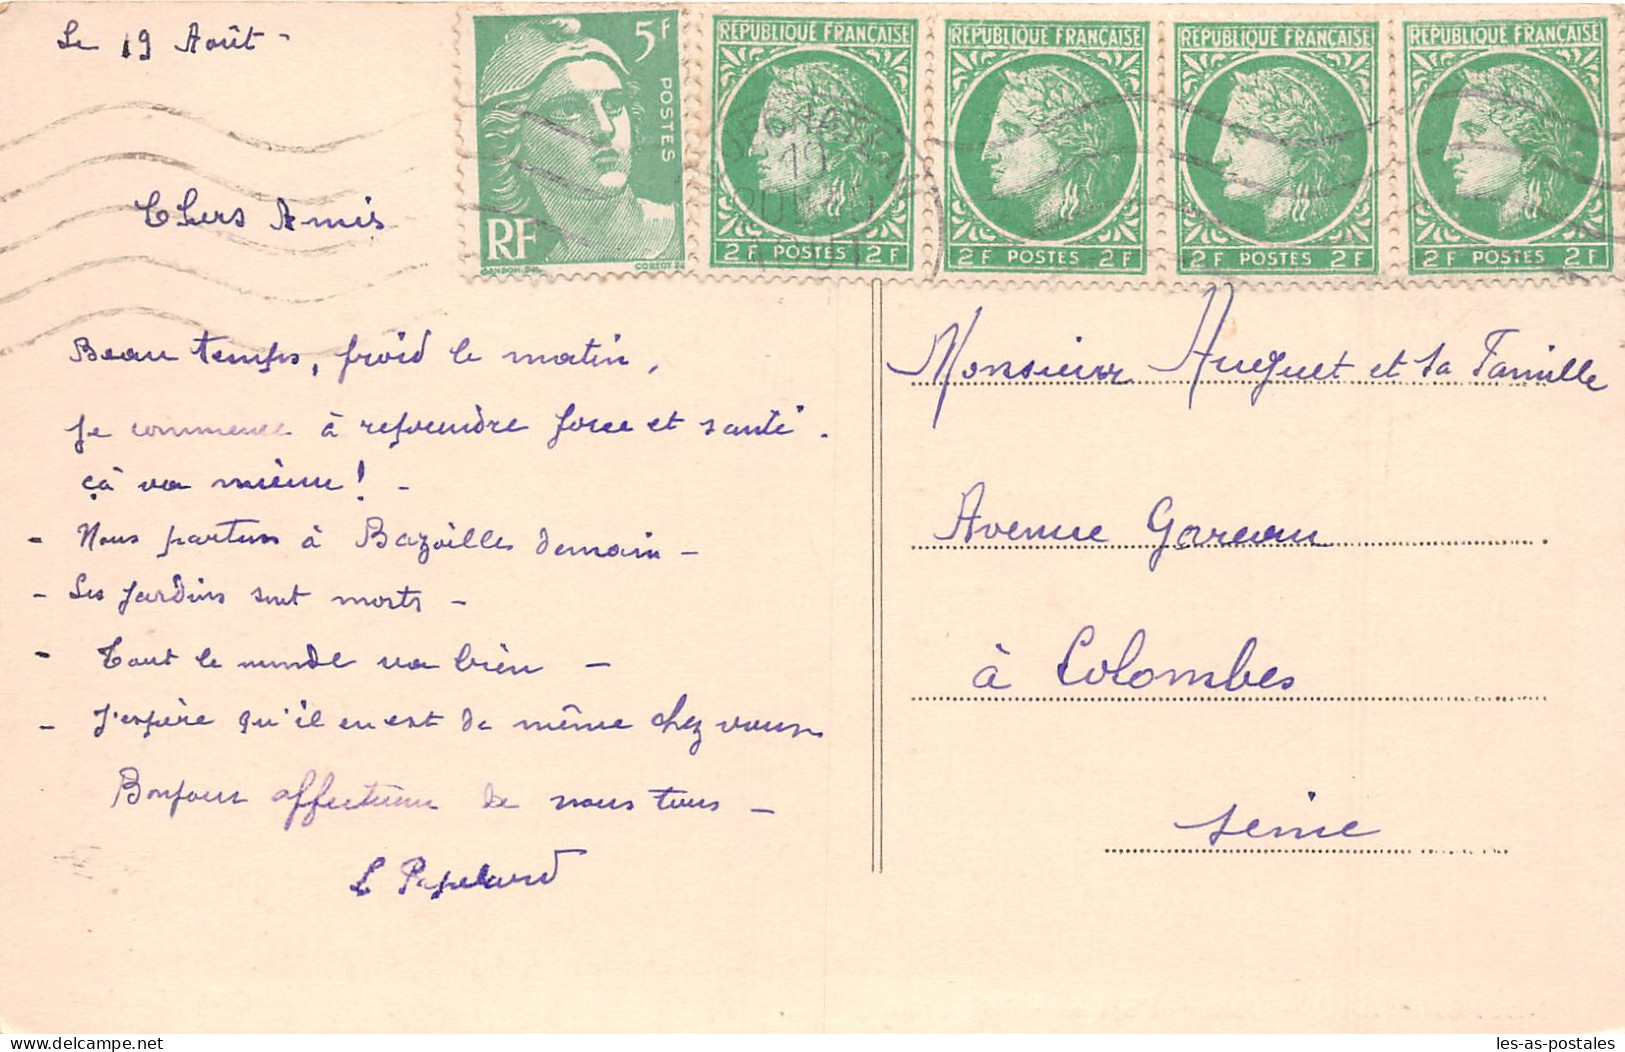 Le 19 Août -
Chers Amis
Beau temps, froid le matin,
Je commence à reprendre force et santé.
çà va mieux! -
- Nous partons à Bazoilles demain -
- Les jardins sont morts -
- Tout le monde va bien -
- J'espère qu'il en est de même chez vous
Bonjour affectueux de nous tous -
L Papelard
5F
POSTES
RF
GANDON. DEL.
CORTOT. SC
REPUBLIQUE FRANÇAISE
2F POSTES 2F
REPUBLIQUE FRANÇAISE
2F POSTES 2F
REPUBLIQUE FRANÇAISE
2F POSTES 2F
REPUBLIQUE FRANÇAISE
2F POSTES 2F
19
Monsieur Huguet et sa Famille
Avenue Gareau
à Colombes
Seine
les-as-postales
www.delcampe.net